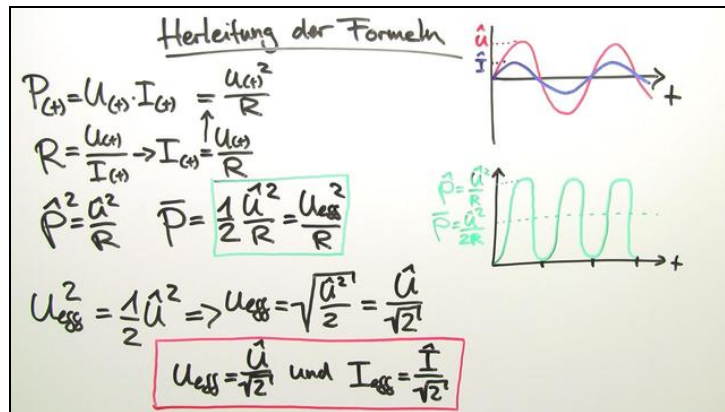 Herleitung der Formeln
P(t)=U(t)·I(t) = U(t)²/R
R=U(t)/I(t) → I(t)=U(t)/R
P̂²=Û²/R P̄=1/2 Û²/R=Ueff²/R
Ueff²=1/2 Û² => Ueff=√(Û²/2)=Û/√2
Ueff=Û/√2 und Ieff=Î/√2
Û
Î
t
P̂=Û²/R
P̄=Û²/2R
t